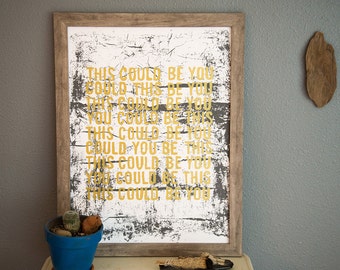 THIS COULD BE YOU
COULD THIS BE YOU
THIS COULD BE YOU
YOU COULD BE THIS
THIS COULD BE YOU
COULD YOU BE THIS
THIS COULD BE YOU
YOU COULD BE THIS
THIS COULD BE YOU